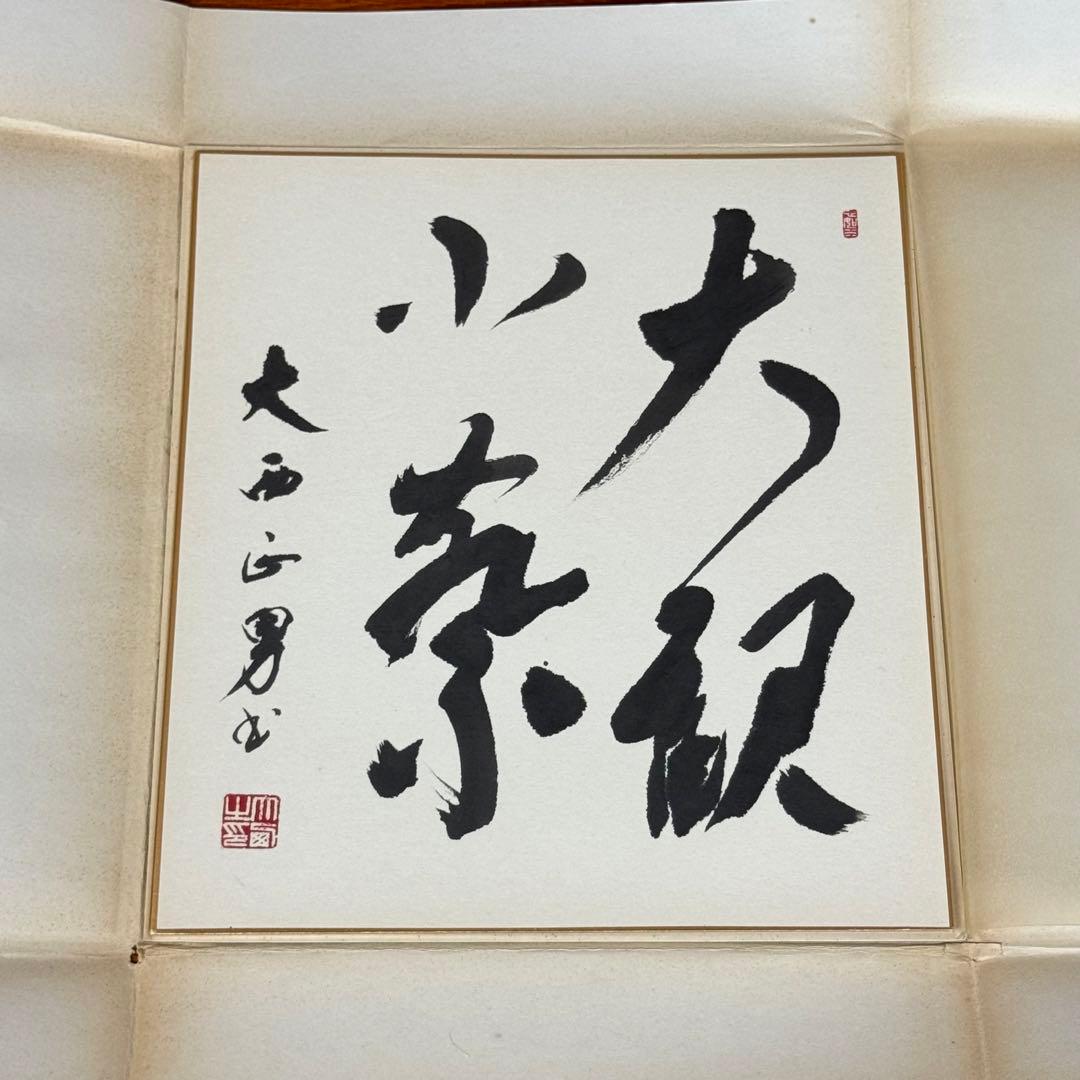 大観
小察
大西正男書